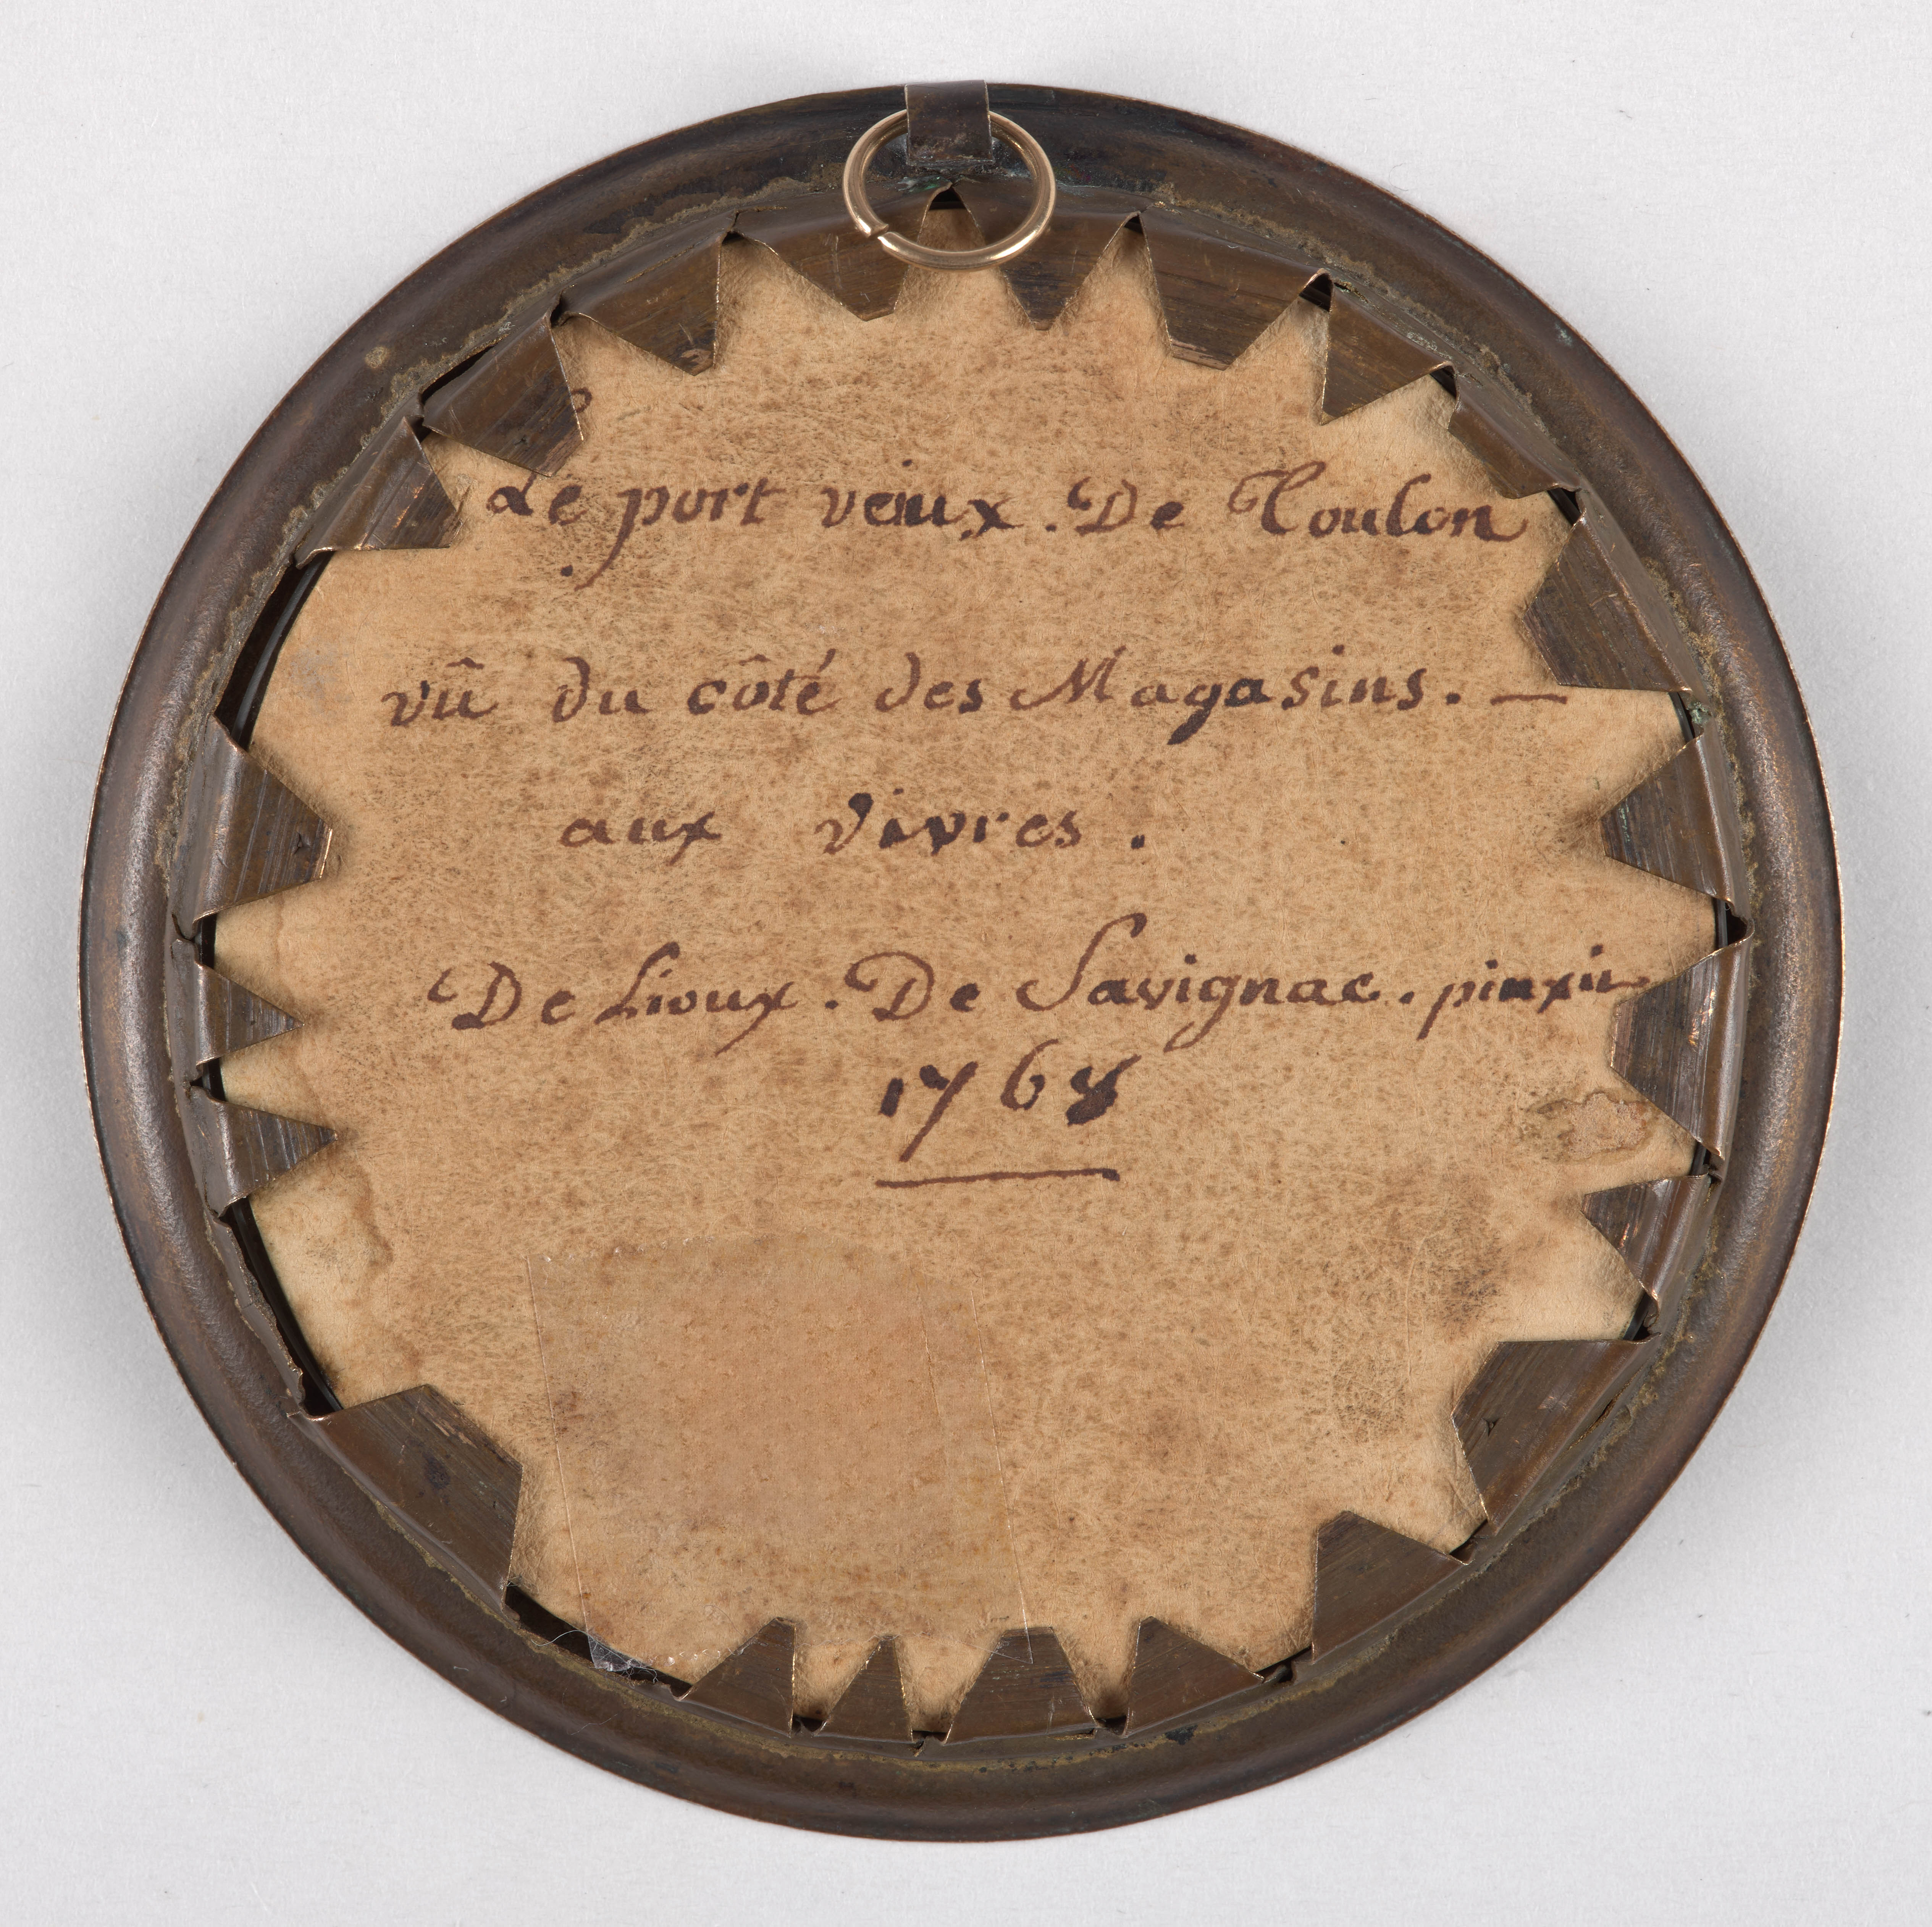 Le port veiux. De Toulon
vû du côté des Magasins. —
aux vivres.
De Lioux. De Savignac. pinxit
1768